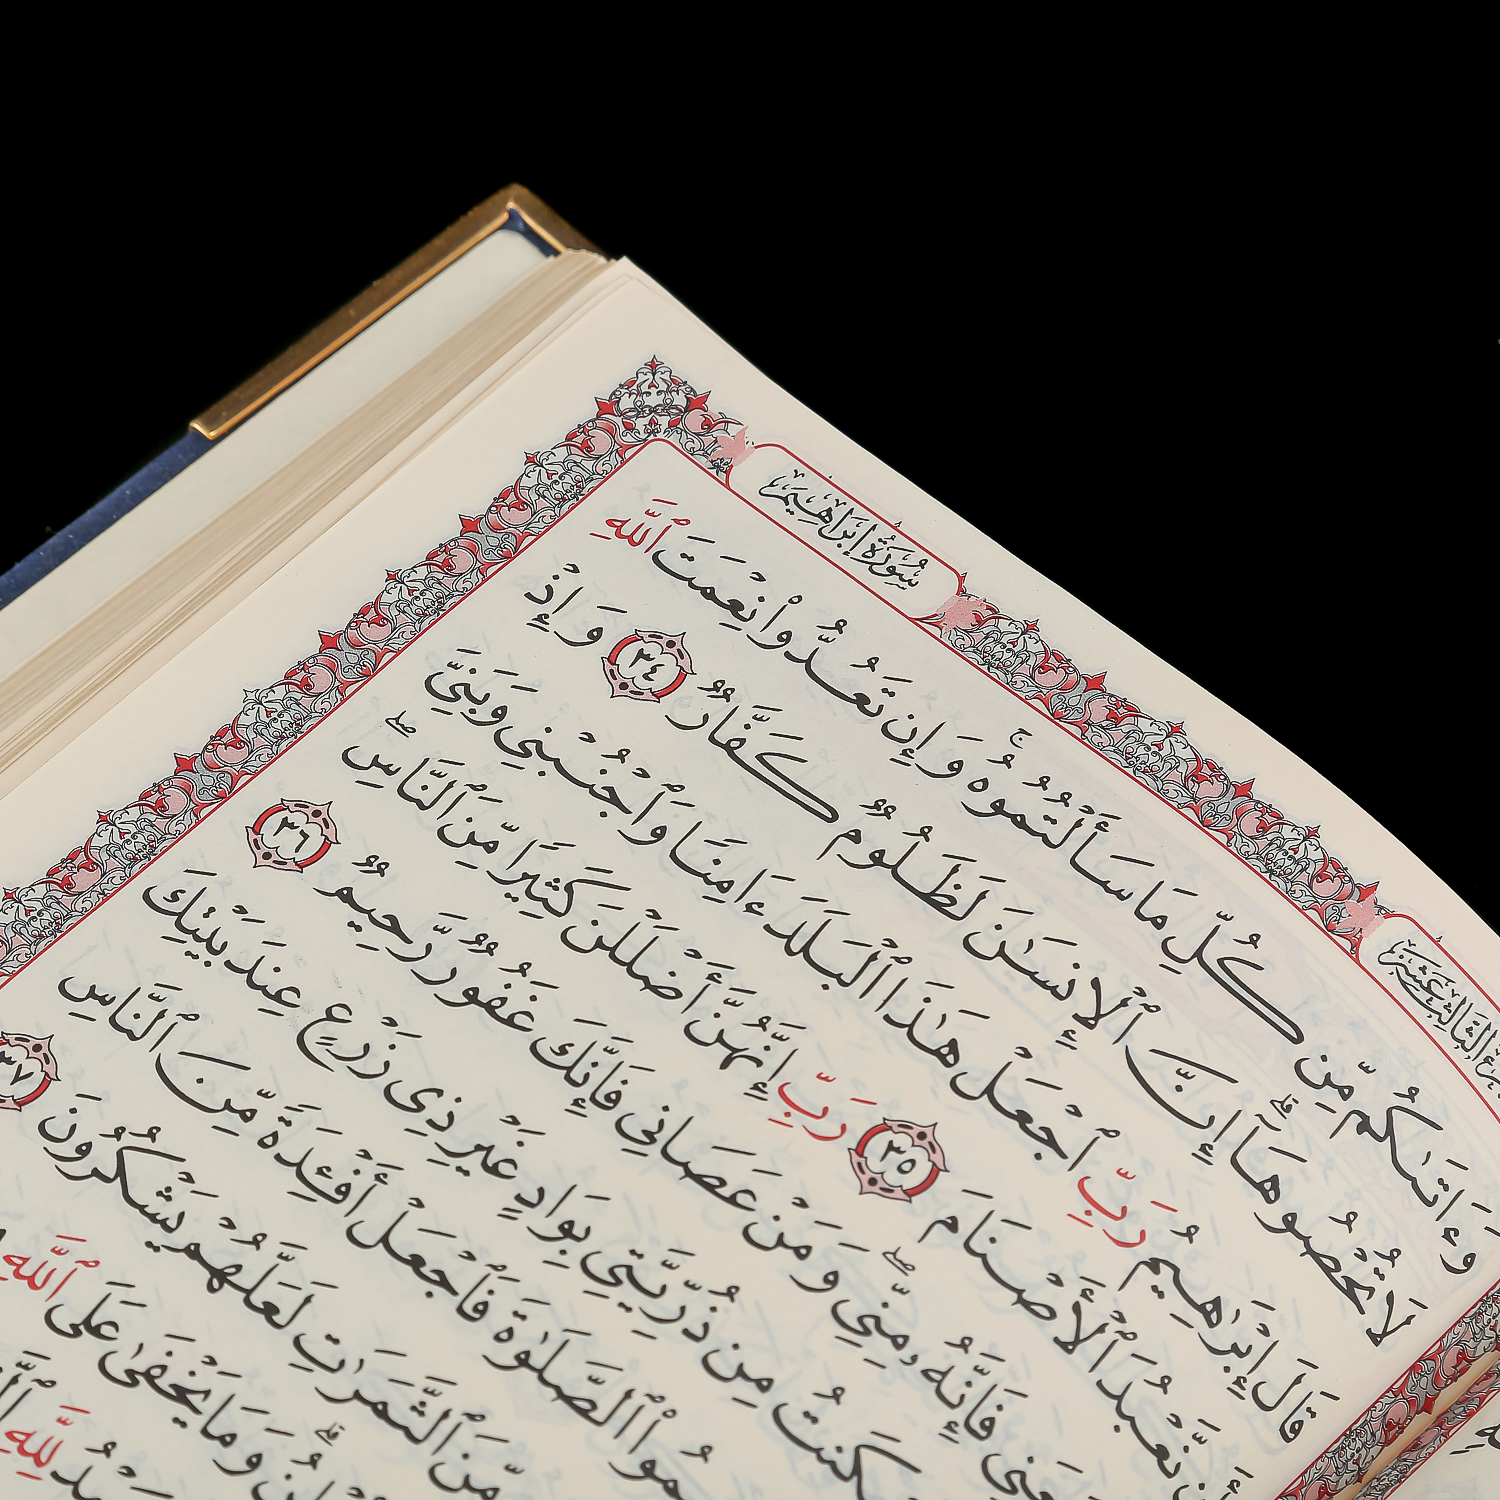 سُورَةُ إِبْرَاهِيم
وَءَاتَىٰكُم مِّن كُلِّ مَا سَأَلْتُمُوهُ ۚ وَإِن تَعُدُّوا۟ نِعْمَتَ ٱللَّهِ
لَا تُحْصُوهَآ ۗ إِنَّ ٱلْإِنسَـٰنَ لَظَلُومٌ كَفَّارٌ ٣٤ وَإِذْ
قَالَ إِبْرَٰهِيمُ رَبِّ ٱجْعَلْ هَـٰذَا ٱلْبَلَدَ ءَامِنًا وَٱجْنُبْنِى وَبَنِىَّ
نَّعْبُدَ ٱلْأَصْنَامَ ٣٥ رَبِّ إِنَّهُنَّ أَضْلَلْنَ كَثِيرًا مِّنَ ٱلنَّاسِ ۖ
فَإِنَّهُۥ مِنِّى ۖ وَمَنْ عَصَانِى فَإِنَّكَ غَفُورٌ رَّحِيمٌ ٣٦
كَنتُ مِن ذُرِّيَّتِى بِوَادٍ غَيْرِ ذِى زَرْعٍ عِندَ بَيْتِكَ
ٱلصَّلَوٰةَ فَٱجْعَلْ أَفْـِٔدَةً مِّنَ ٱلنَّاسِ
مِّنَ ٱلثَّمَرَٰتِ لَعَلَّهُمْ يَشْكُرُونَ ٣٧
وَمَا يَخْفَىٰ عَلَى ٱللَّهِ
لِلَّهِ